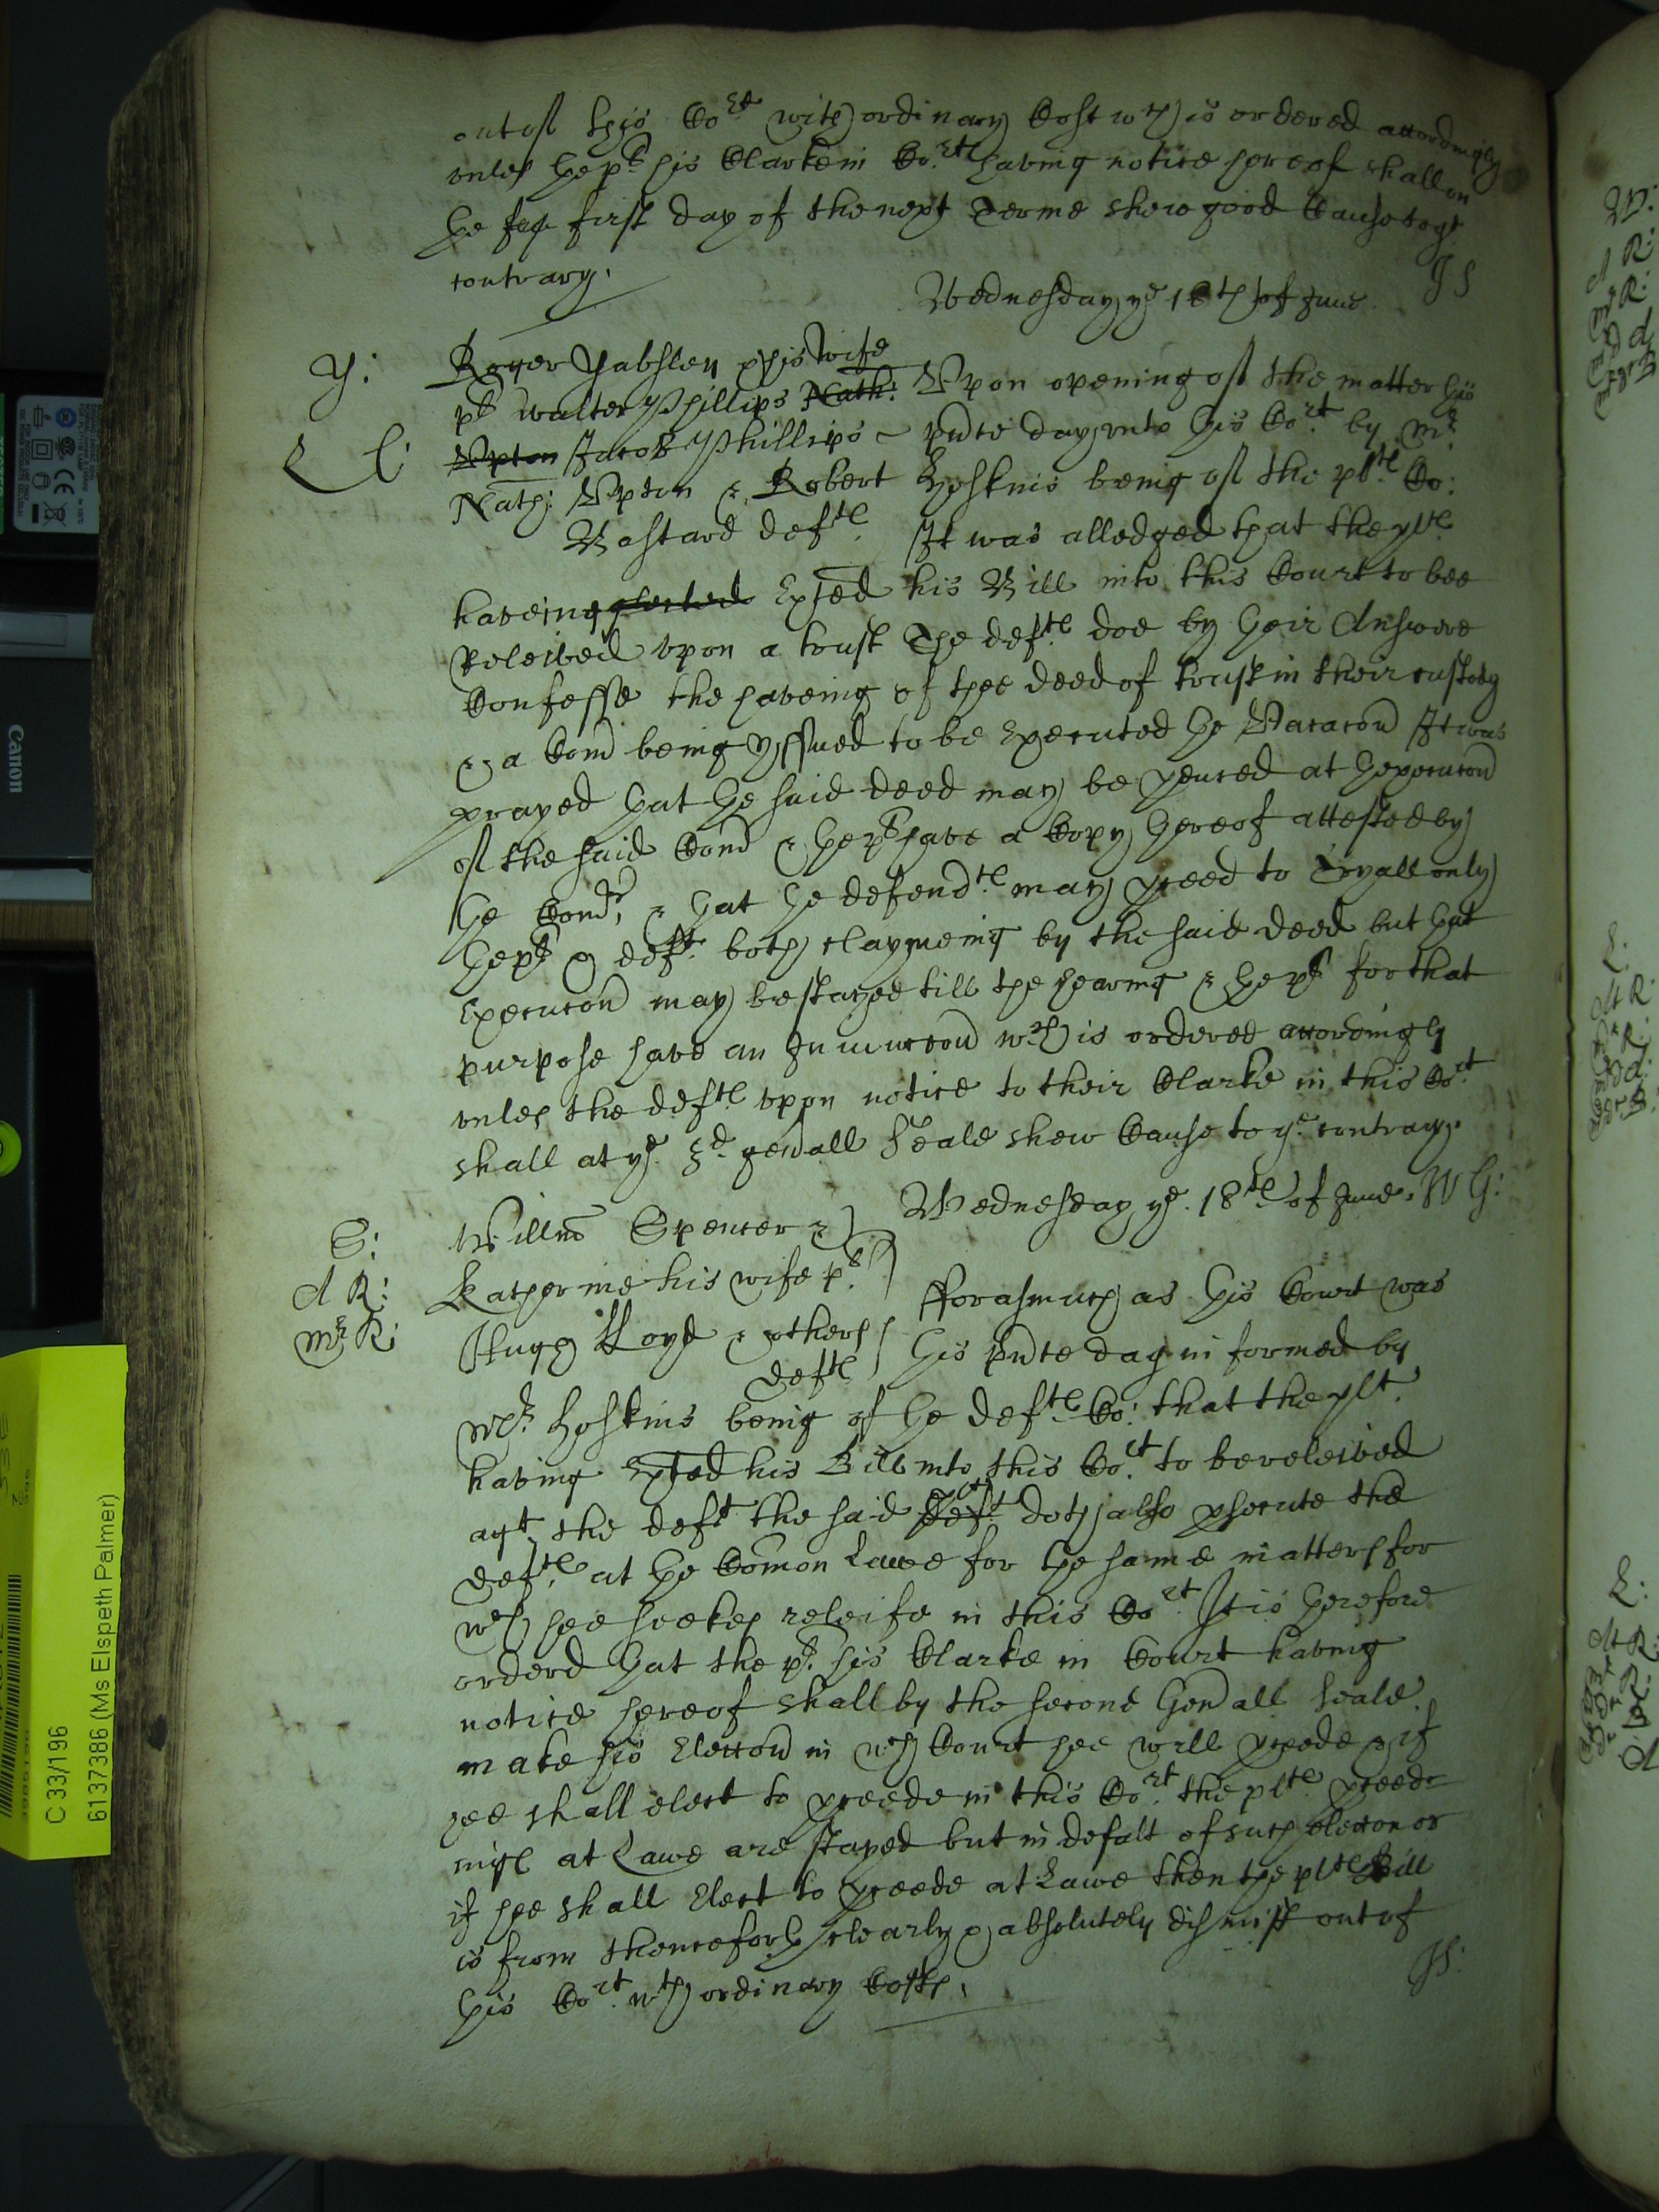 out of this Co:rt with ordinary Cost wch is ordered accordingly
unles the pt his Clarke in Co:rt having notice hereof shall on
the first day of the next Terme shew good Cause to ye
contrary.
JS
Wednesday ye 18th of June
Y:
Roger Yabsley & his wife
pts Walter Phillips Nath: Upon opening of the matter this
Upton Jacob Phillips pnte day unto this Co:rt by Mr
L
Nath: Upton & Robert Hoskins being of the plts Co:
Bastard defts It was alledged that the plts
haveing Exhted his Bill into this Court to bee
Releived upon a trust The defts doe by their Answere
Confesse the haveing of the deed of trust in their custody
& a Comn being yssued to be Executed the Vacacon It was
prayed that the said deed may be pduced at thexecucon
of the said Comn & the pts have a Copy thereof attested by
the Comrs, & that the defendts may pceed to Tryall only
the pts & defts both claymeing by the said deed but that
Execucon may be stayed till the hearing & the pts for that
purpose have an Iniunccon wch is ordered accordingly
unles the defts upon notice to their Clarke in this Co:rt
shall at ye 3d genall Seale shew Cause to ye contrary.
Wednesday ye 18th of June. WG:
S:
Willm Spencer &
A R:
Katherine his wife pts
Mr R:
Hugh Lloyd & others
defts
Forasmuch as this Court was
this pnte day informed by
Mr Hoskins being of the defts Co: that the plt
having Exhted his Bill into this Co:rt to be releived
agt the deft the said deft plt doth also psecute the
defts at the Comon Lawe for the same matters for
wch hee seekes releife in this Co:rt It is therefore
orderd that the pts his Clarke in Court having
notice hereof shall by the second Genall Seale
make his Eleccon in wch Court hee will pceede & if
hee shall elect to pceede in this Co:rt the plts pceed
ings at Lawe are stayed but in defalt of such eleccon or
if hee shall Elect to pceede at Lawe then the plts Bill
is from thenceforth clearly & absolutely dismist out of
this Co:rt wth ordinary Costs.
JS:
Canon
C 33/196
6137386 (Ms Elspeth Palmer)